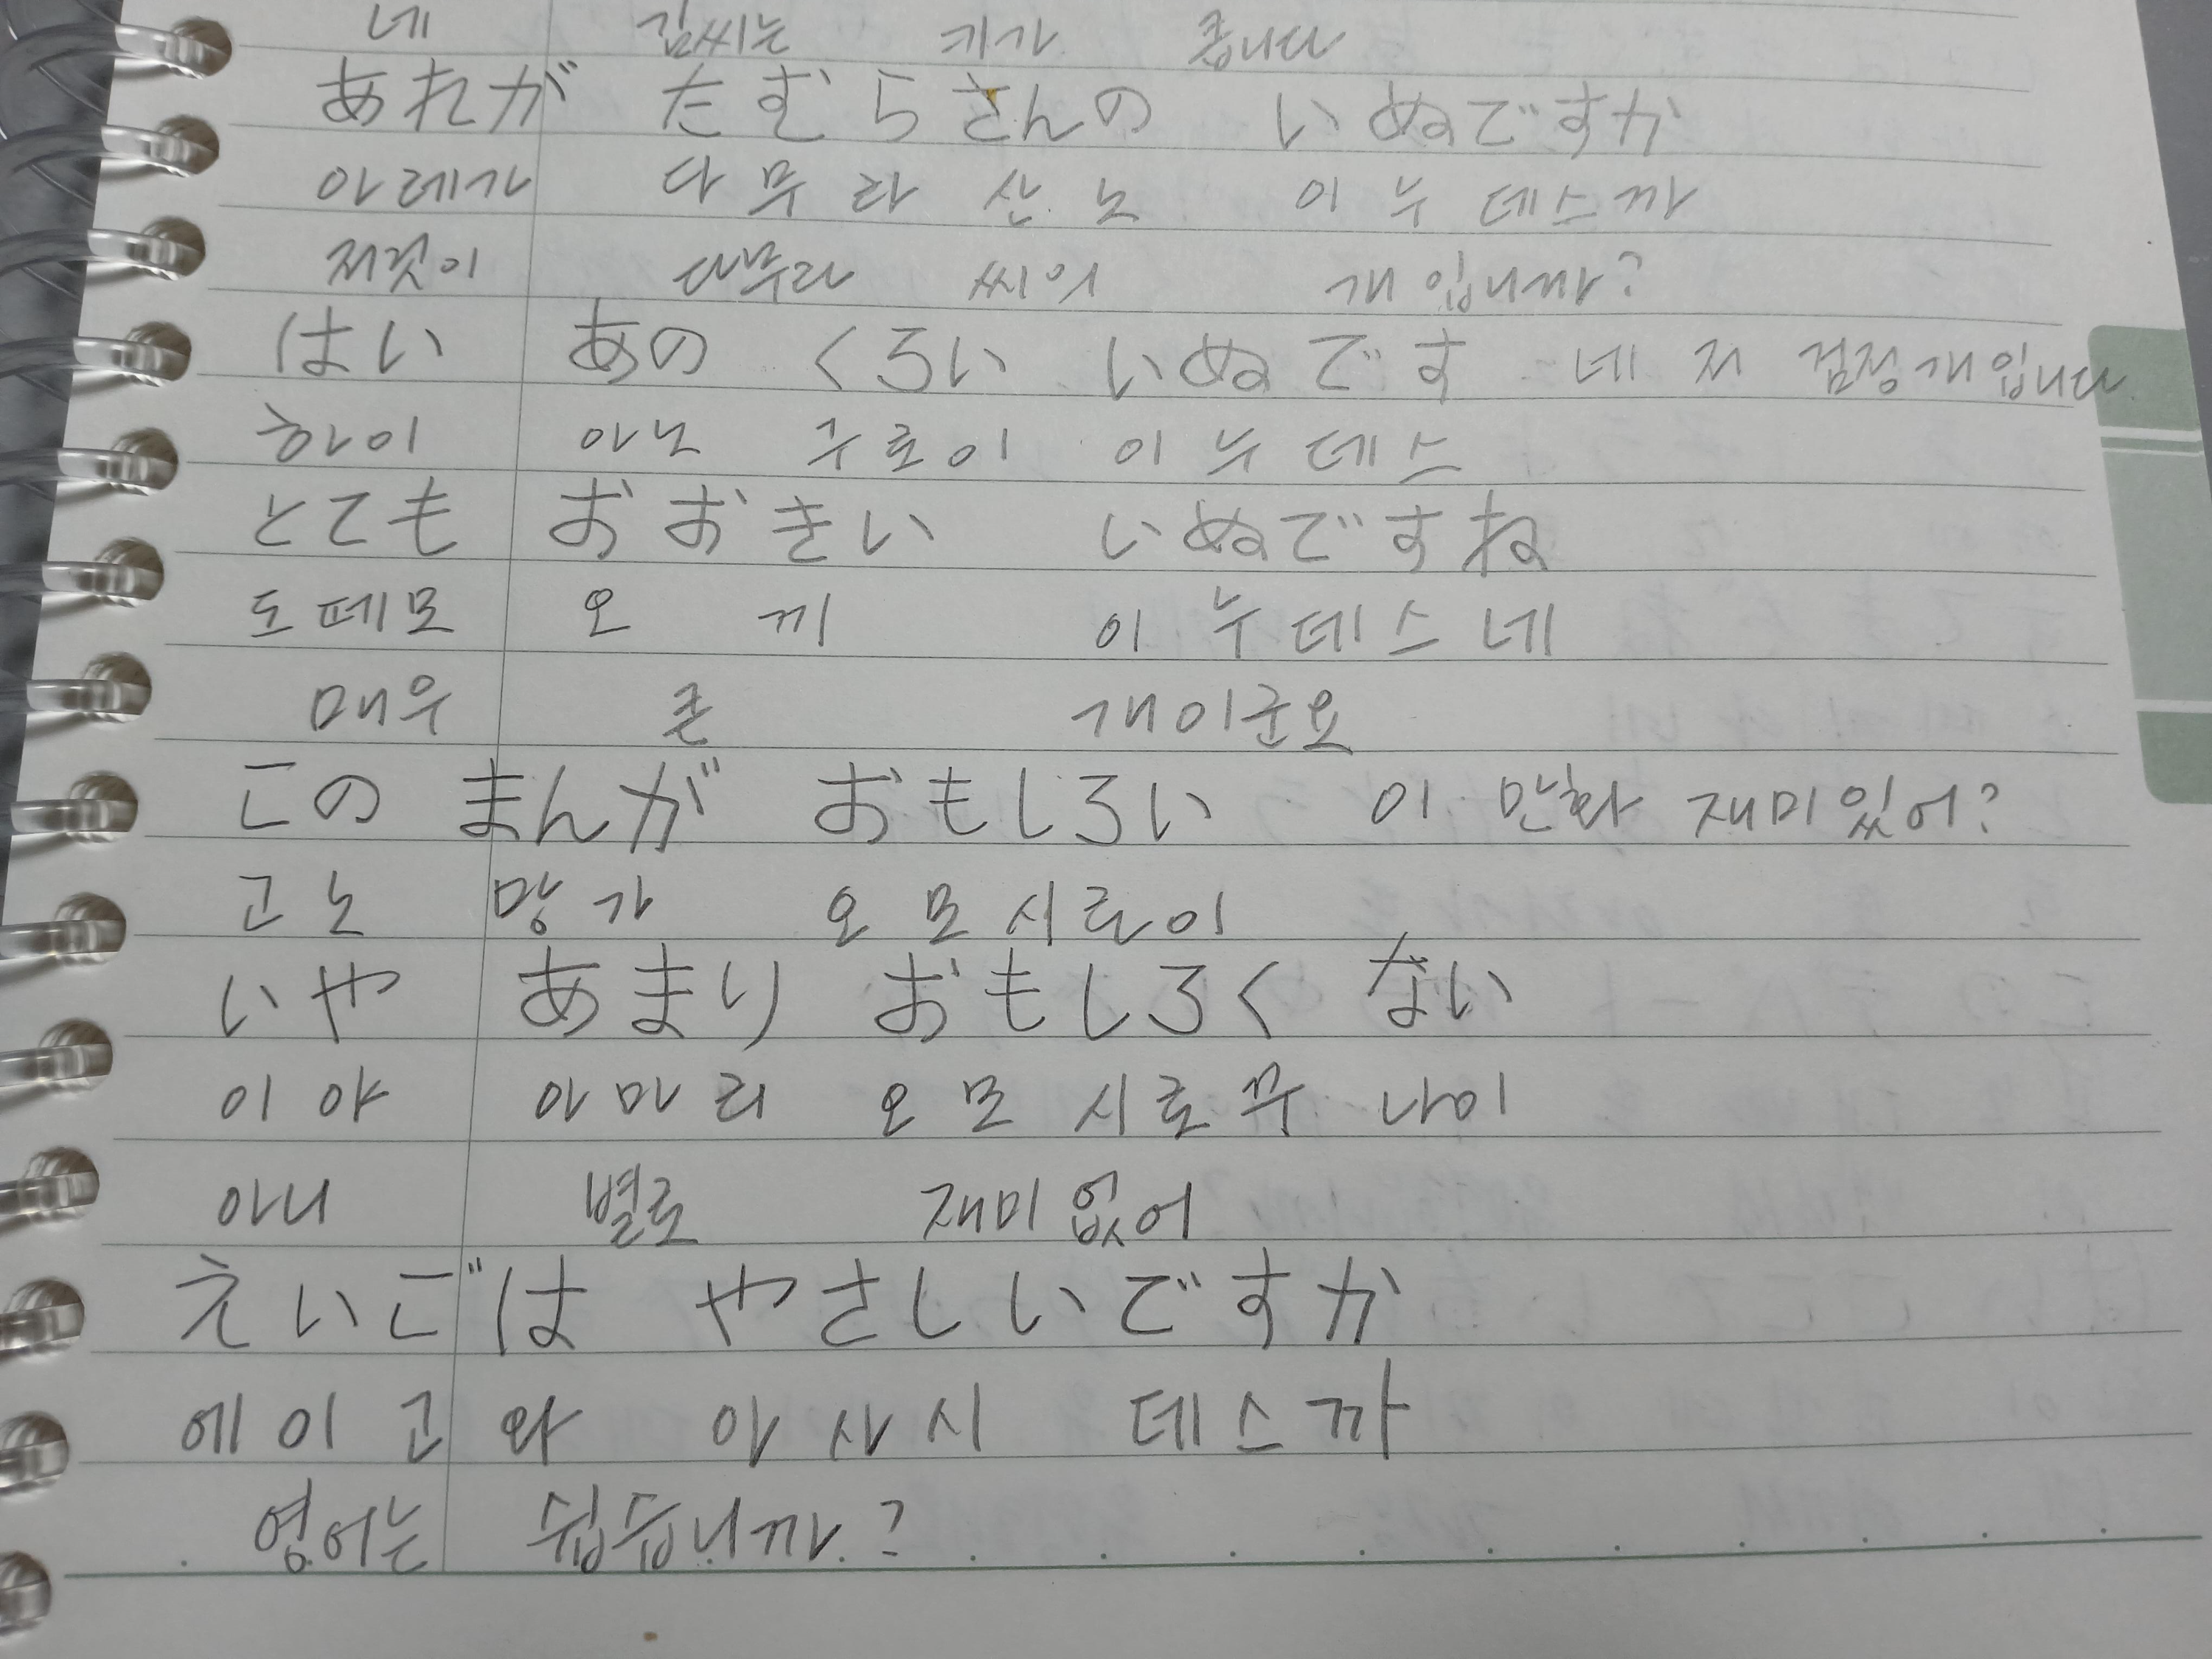 네 김씨는 키가 큽니다
あれが たむらさんの いぬですか
아레가 다무라산노 이누데스까
저것이 다무라 씨의 개입니까?
はい あの くろい いぬです 네 저 검정개입니다
하이 아노 구로이 이누데스
とても おおきい いぬですね
도떼모 오 끼 이누데스네
매우 큰 개이군요
この まんが おもしろい 이 만화 재미있어?
고노 망가 오모시로이
いや あまり おもしろく ない
이야 아마리 오모시로꾸 나이
아니 별로 재미없어
えいごは やさしいですか
에이고와 야사시 데스까
영어는 쉽습니까?